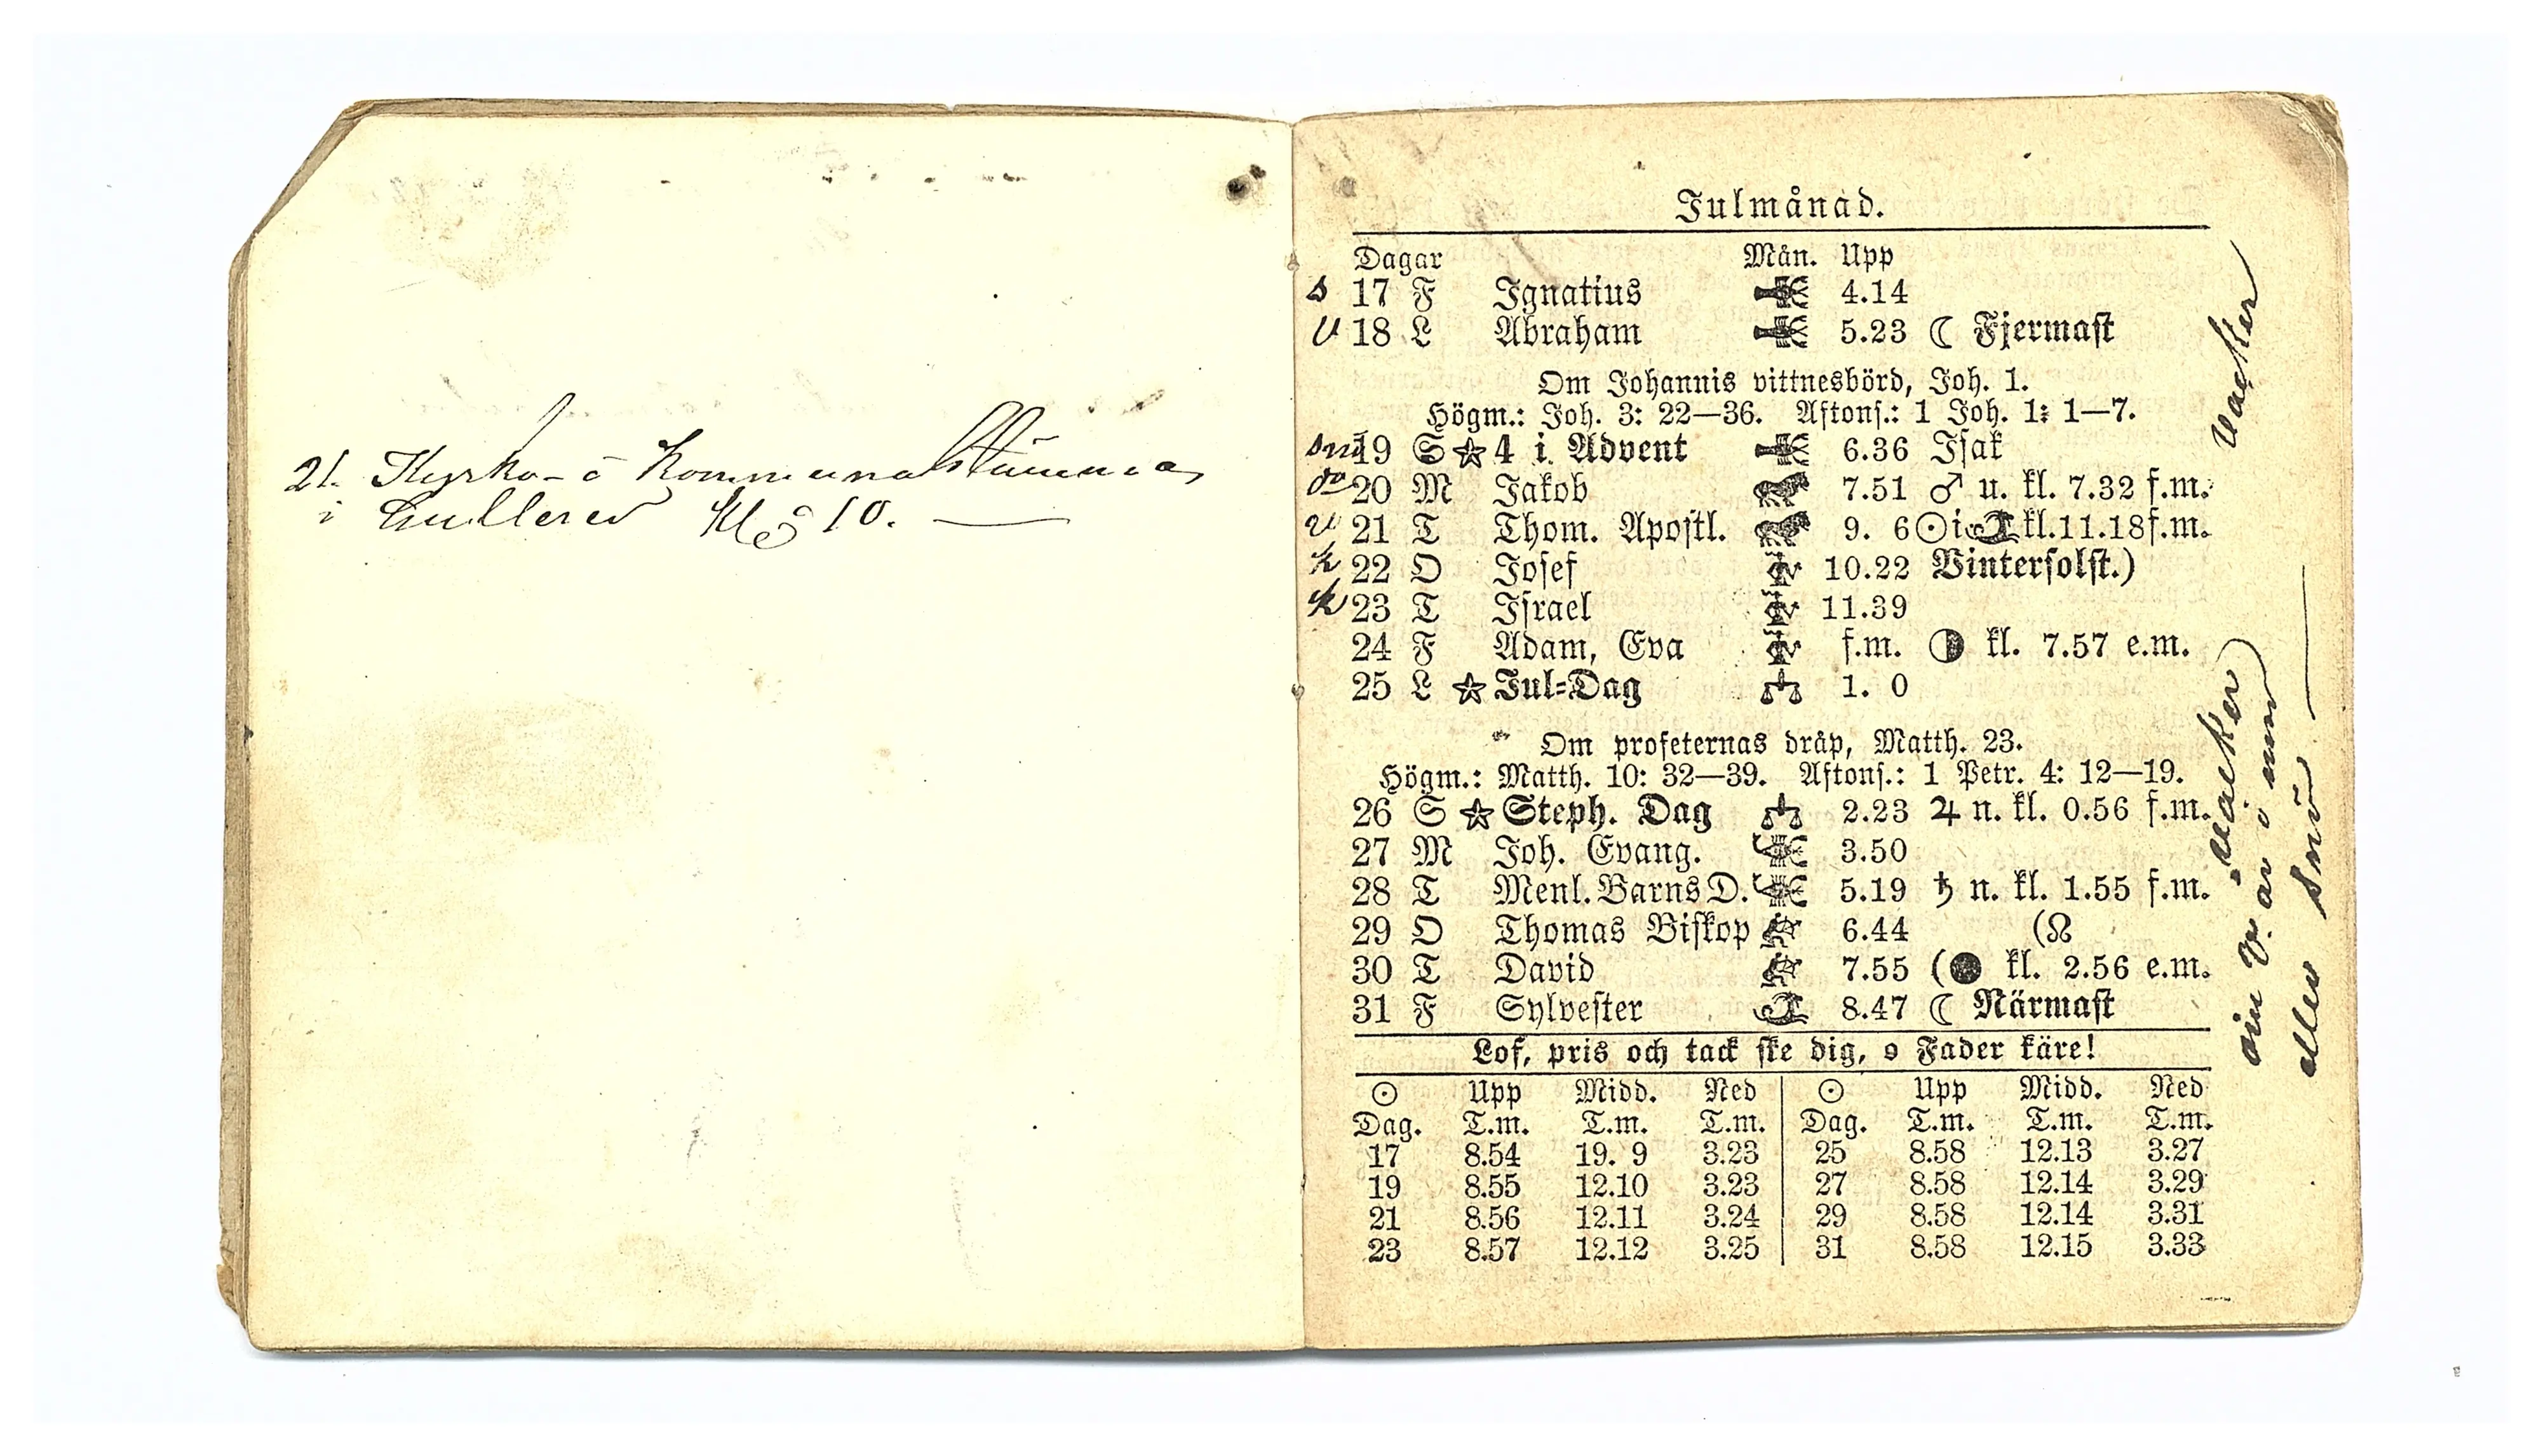 21. Kyrko- o Kommunalstämma
i Kl 10.
Julmånad.
Dagar Mån. Upp
s 17 F Ignatius 4.14
v 18 L Abraham 5.23 ☾ Fjermast
Om Johannis vittnesbörd, Joh. 1.
Högm.: Joh. 3: 22—36. Aftons.: 1 Joh. 1: 1—7.
snö 19 S ★ 4 i Advent 6.36 Isak
do 20 M Jakob 7.51 ♂ u. kl. 7.32 f.m.
v 21 T Thom. Apostl. 9. 6 ☉ i ♑ kl. 11.18 f.m.
k 22 O Josef 10.22 Vintersolst.)
k 23 T Israel 11.39
24 F Adam, Eva f.m. ◑ kl. 7.57 e.m.
25 L ★ Jul-Dag 1. 0
Om profeternas dråp, Matth. 23.
Högm.: Matth. 10: 32—39. Aftons.: 1 Petr. 4: 12—19.
26 S ★ Steph. Dag 2.23 ♃ n. kl. 0.56 f.m.
27 M Joh. Evang. 3.50
28 T Menl. Barns D. 5.19 ♄ n. kl. 1.55 f.m.
29 O Thomas Biskop 6.44 (☊
30 T David 7.55 (● kl. 2.56 e.m.
31 F Sylvester 8.47 ☾ Närmast
Lof, pris och tack ske dig, o Fader käre!
☉ Upp Midd. Ned ☉ Upp Midd. Ned
Dag. T.m. T.m. T.m. Dag. T.m. T.m. T.m.
17 8.54 19. 9 3.23 25 8.58 12.13 3.27
19 8.55 12.10 3.23 27 8.58 12.14 3.29
21 8.56 12.11 3.24 29 8.58 12.14 3.31
23 8.57 12.12 3.25 31 8.58 12.15 3.33
vacker
vacker
eller snö